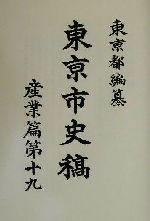 東京都編纂
東京市史稿
産業篇第十九